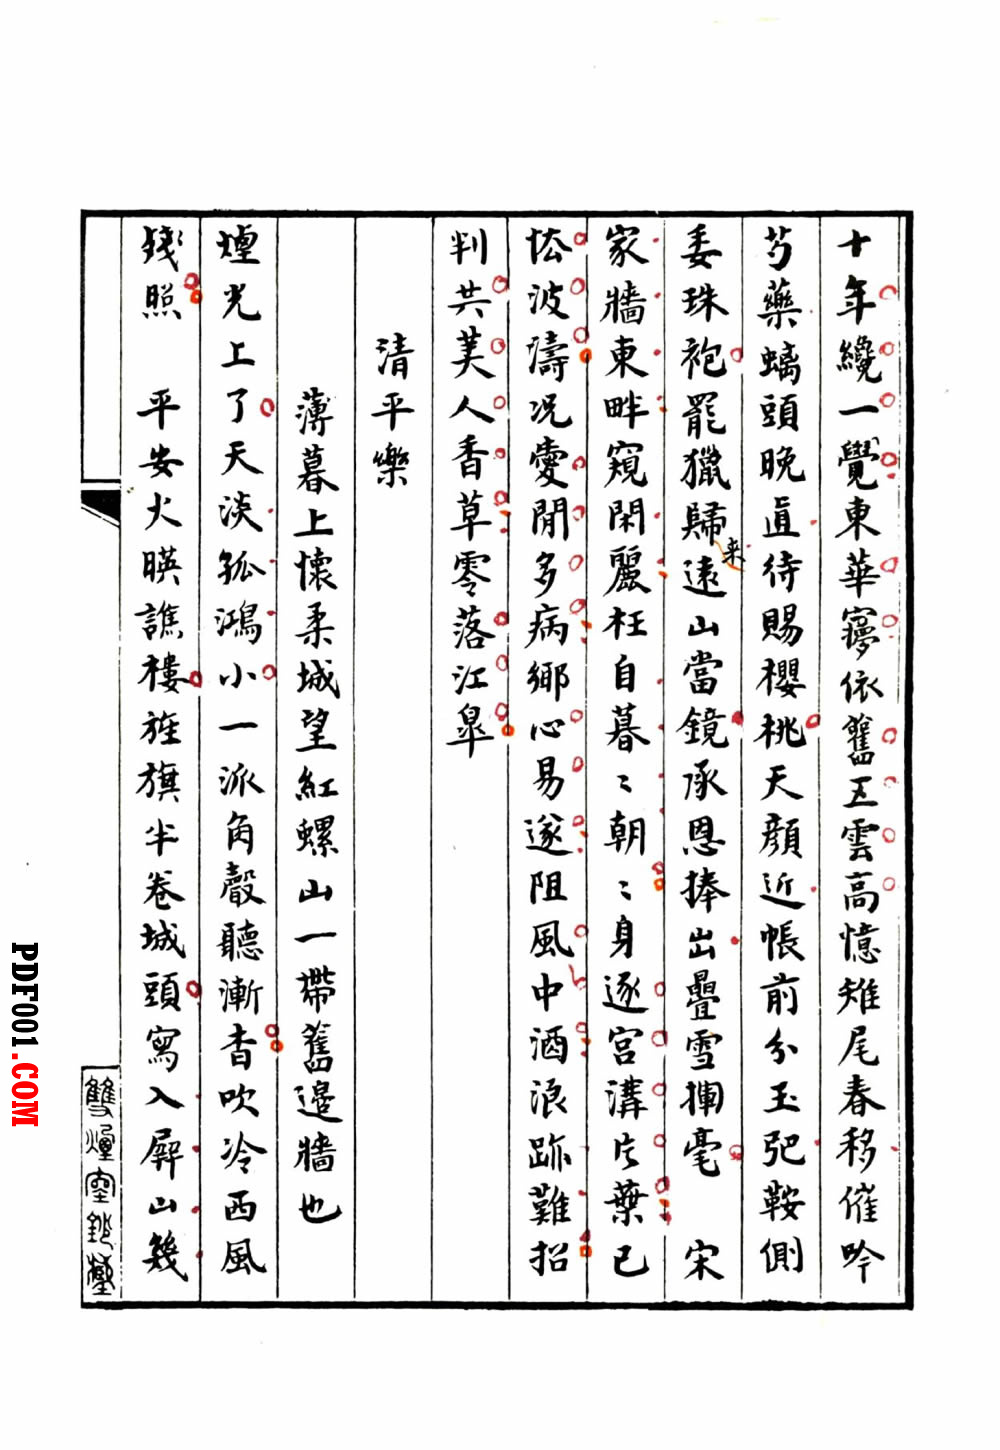 十年纔一覺東華寢依舊五雲高憶雉尾春移催吟
芍藥螭頭晚直待賜櫻桃天顏近帳前分玉弝鞍側
委珠袍罷獵歸來遠山當鏡承恩捧出疊雪攔毫　宋
家牆東畔窺閑麗枉自暮〻朝〻身逐宮溝片葉已
怯波濤況愛閒多病鄉心易遂阻風中酒浪跡難招
判共美人香草零落江皋
清平樂
薄暮上懷柔城望紅螺山一帶舊邊牆也
煙光上了天淡孤鴻小一派角聲聽漸杳吹冷西風
殘照　平安火暎譙樓旌旗半卷城頭寫入屏山幾
雙煙室
PDF001.COM